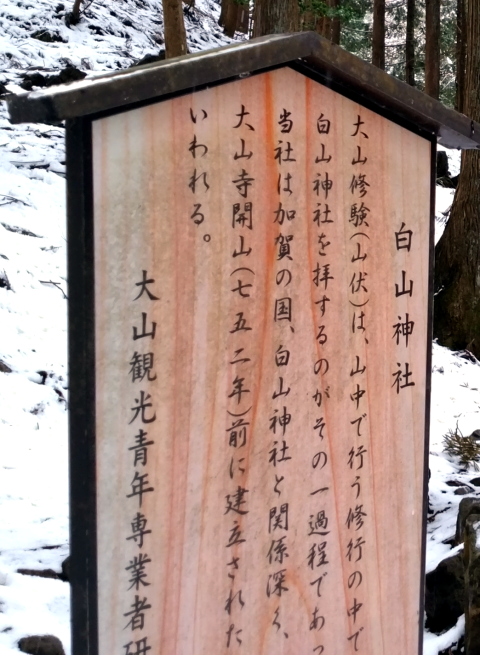 白山神社
大山修験(山伏)は、山中で行う修行の中で
白山神社を拝するのがその一過程であっ
当社は加賀の国、白山神社と関係深く、
大山寺開山(七五二年)前に建立された
いわれる。
大山観光青年専業者研